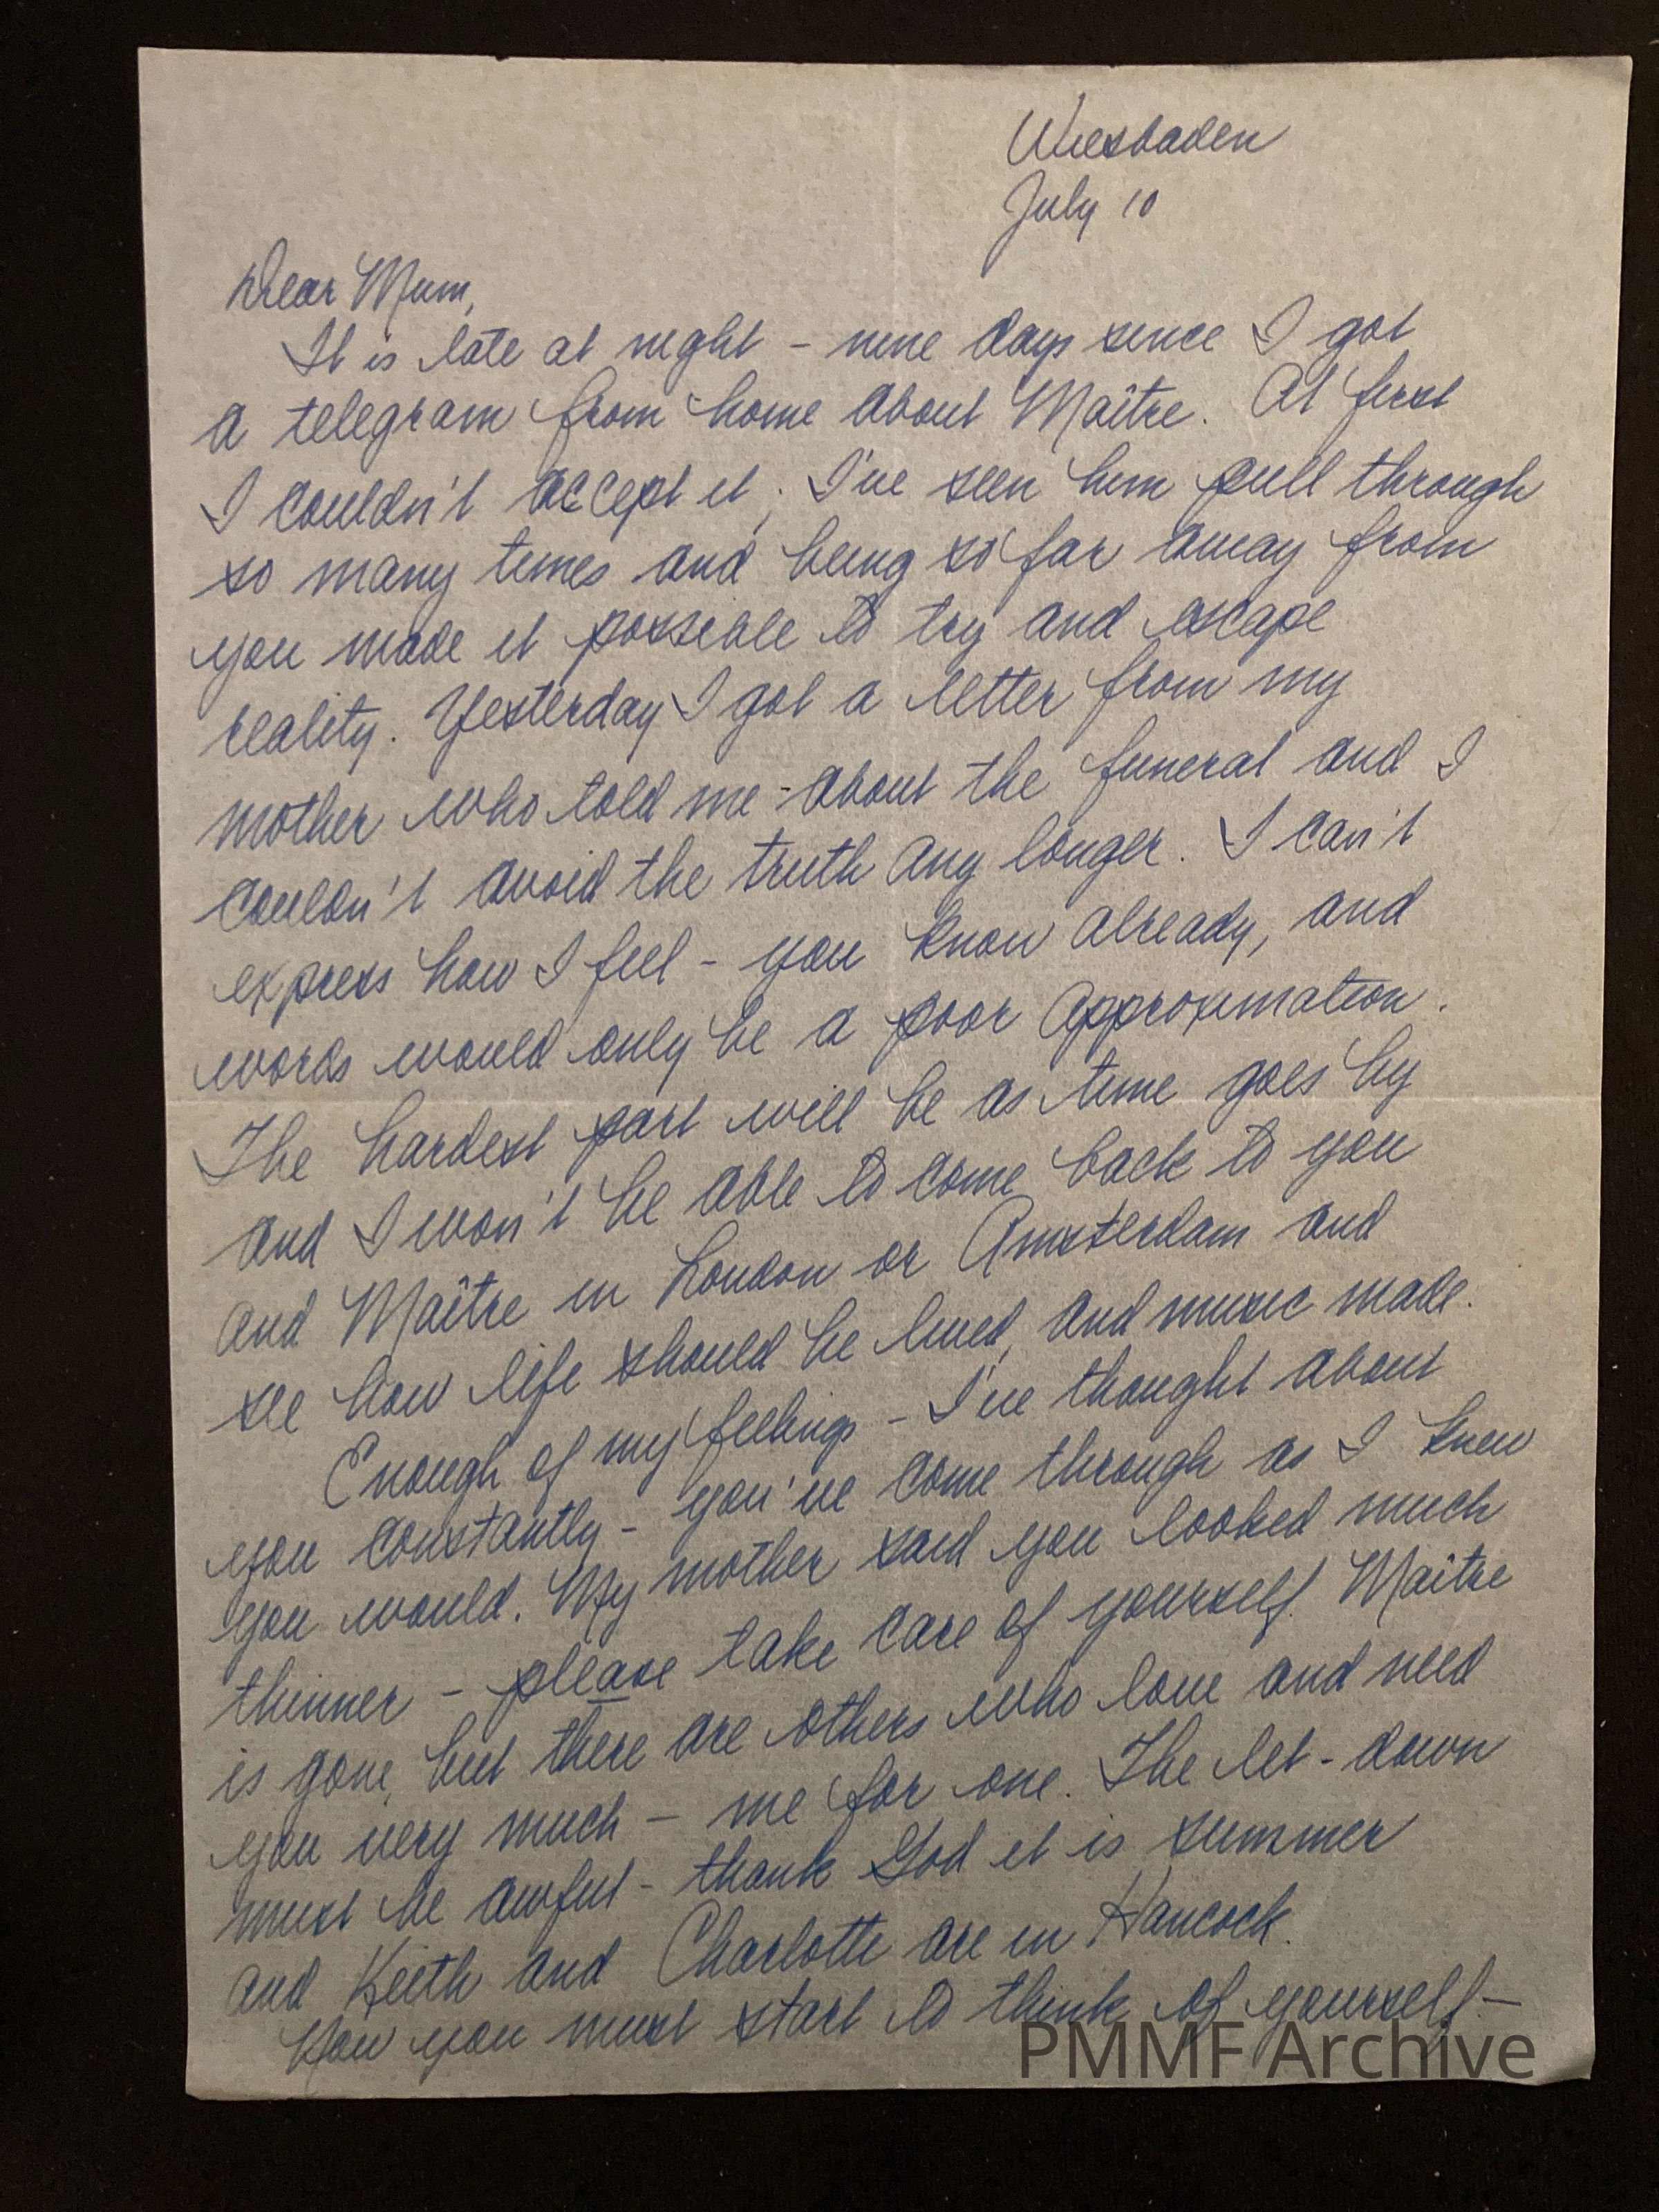 Wiesbaden
July 10
Dear Mum,
It is late at night – nine days since I got
a telegram from home about Maître. At first
I couldn't accept it; I've seen him pull through
so many times and being so far away from
you made it possible to try and escape
reality. Yesterday I got a letter from my
mother who told me about the funeral and I
couldn't avoid the truth any longer. I can't
express how I feel – you know already, and
words would only be a poor approximation.
The hardest part will be as time goes by
and I won't be able to come back to you
and Maître in London or Amsterdam and
see how life should be lived, and music made.
Enough of my feelings – I've thought about
you constantly – you've come through as I knew
you would. My mother said you looked much
thinner – please take care of yourself. Maître
is gone, but there are others who love and need
you very much – me for one. The let-down
must be awful – thank God it is summer
and Keith and Charlotte are in Hancock.
Now you must start to think of yourself –
PMMF Archive